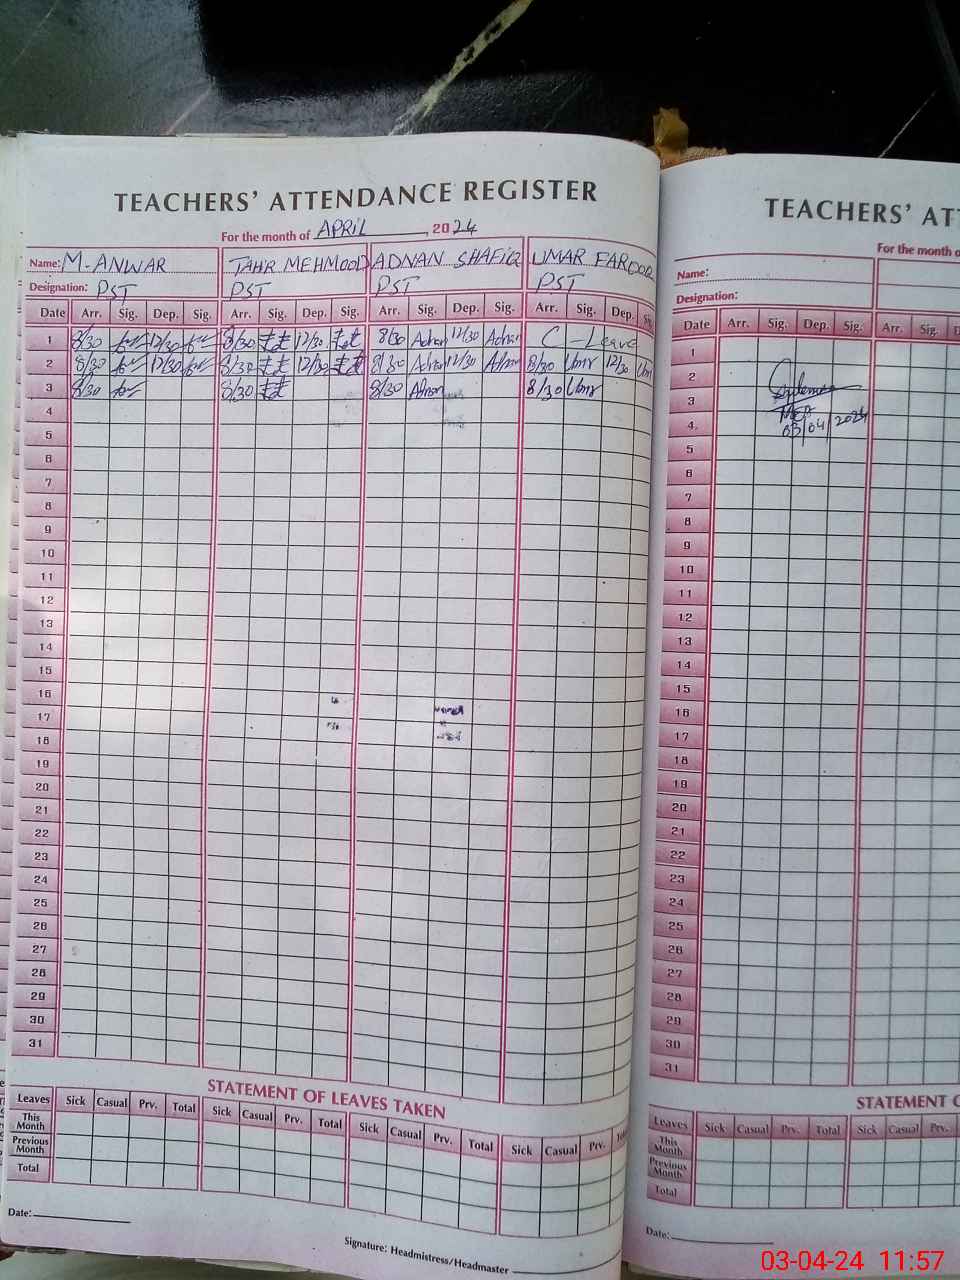 TEACHERS' ATTENDANCE REGISTER
For the month of APRIL, 2024
Name: M. ANWAR TAHR MEHMOOD ADNAN SHAFIQ UMAR FAROOQ
Designation: PST PST PST PST
Date Arr. Sig. Dep. Sig. Arr. Sig. Dep. Sig. Arr. Sig. Dep. Sig. Arr. Sig. Dep. Sig.
1 8/30 12/30 8/30 12/30 8/30 Adnan 12/30 Adnan C-Leave
2 8/30 12/30 8/30 12/30 8/30 Adnan 12/30 Adnan 8/30 Umr 12/30 Umr
3 8/30 8/30 8/30 Adnan 8/30 Umr
4
5
6
7
8
9
10
11
12
13
14
15
16
17
18
19
20
21
22
23
24
25
26
27
28
29
30
31
STATEMENT OF LEAVES TAKEN
Leaves Sick Casual Prv. Total Sick Casual Prv. Total Sick Casual Prv. Total Sick Casual Prv.
This Month
Previous Month
Total
Date:
Signature: Headmistress/Headmaster
TEACHERS' AT
For the month o
Name:
Designation:
Date Arr. Sig. Dep. Sig. Arr. Sig. D
1
2
3
4
03/04/2024
5
6
7
8
9
10
11
12
13
14
15
16
17
18
19
20
21
22
23
24
25
26
27
28
29
30
31
STATEMENT O
Leaves Sick Casual Prv. Total Sick Casual Prv.
This Month
Previous Month
Total
Date:
03-04-24 11:57